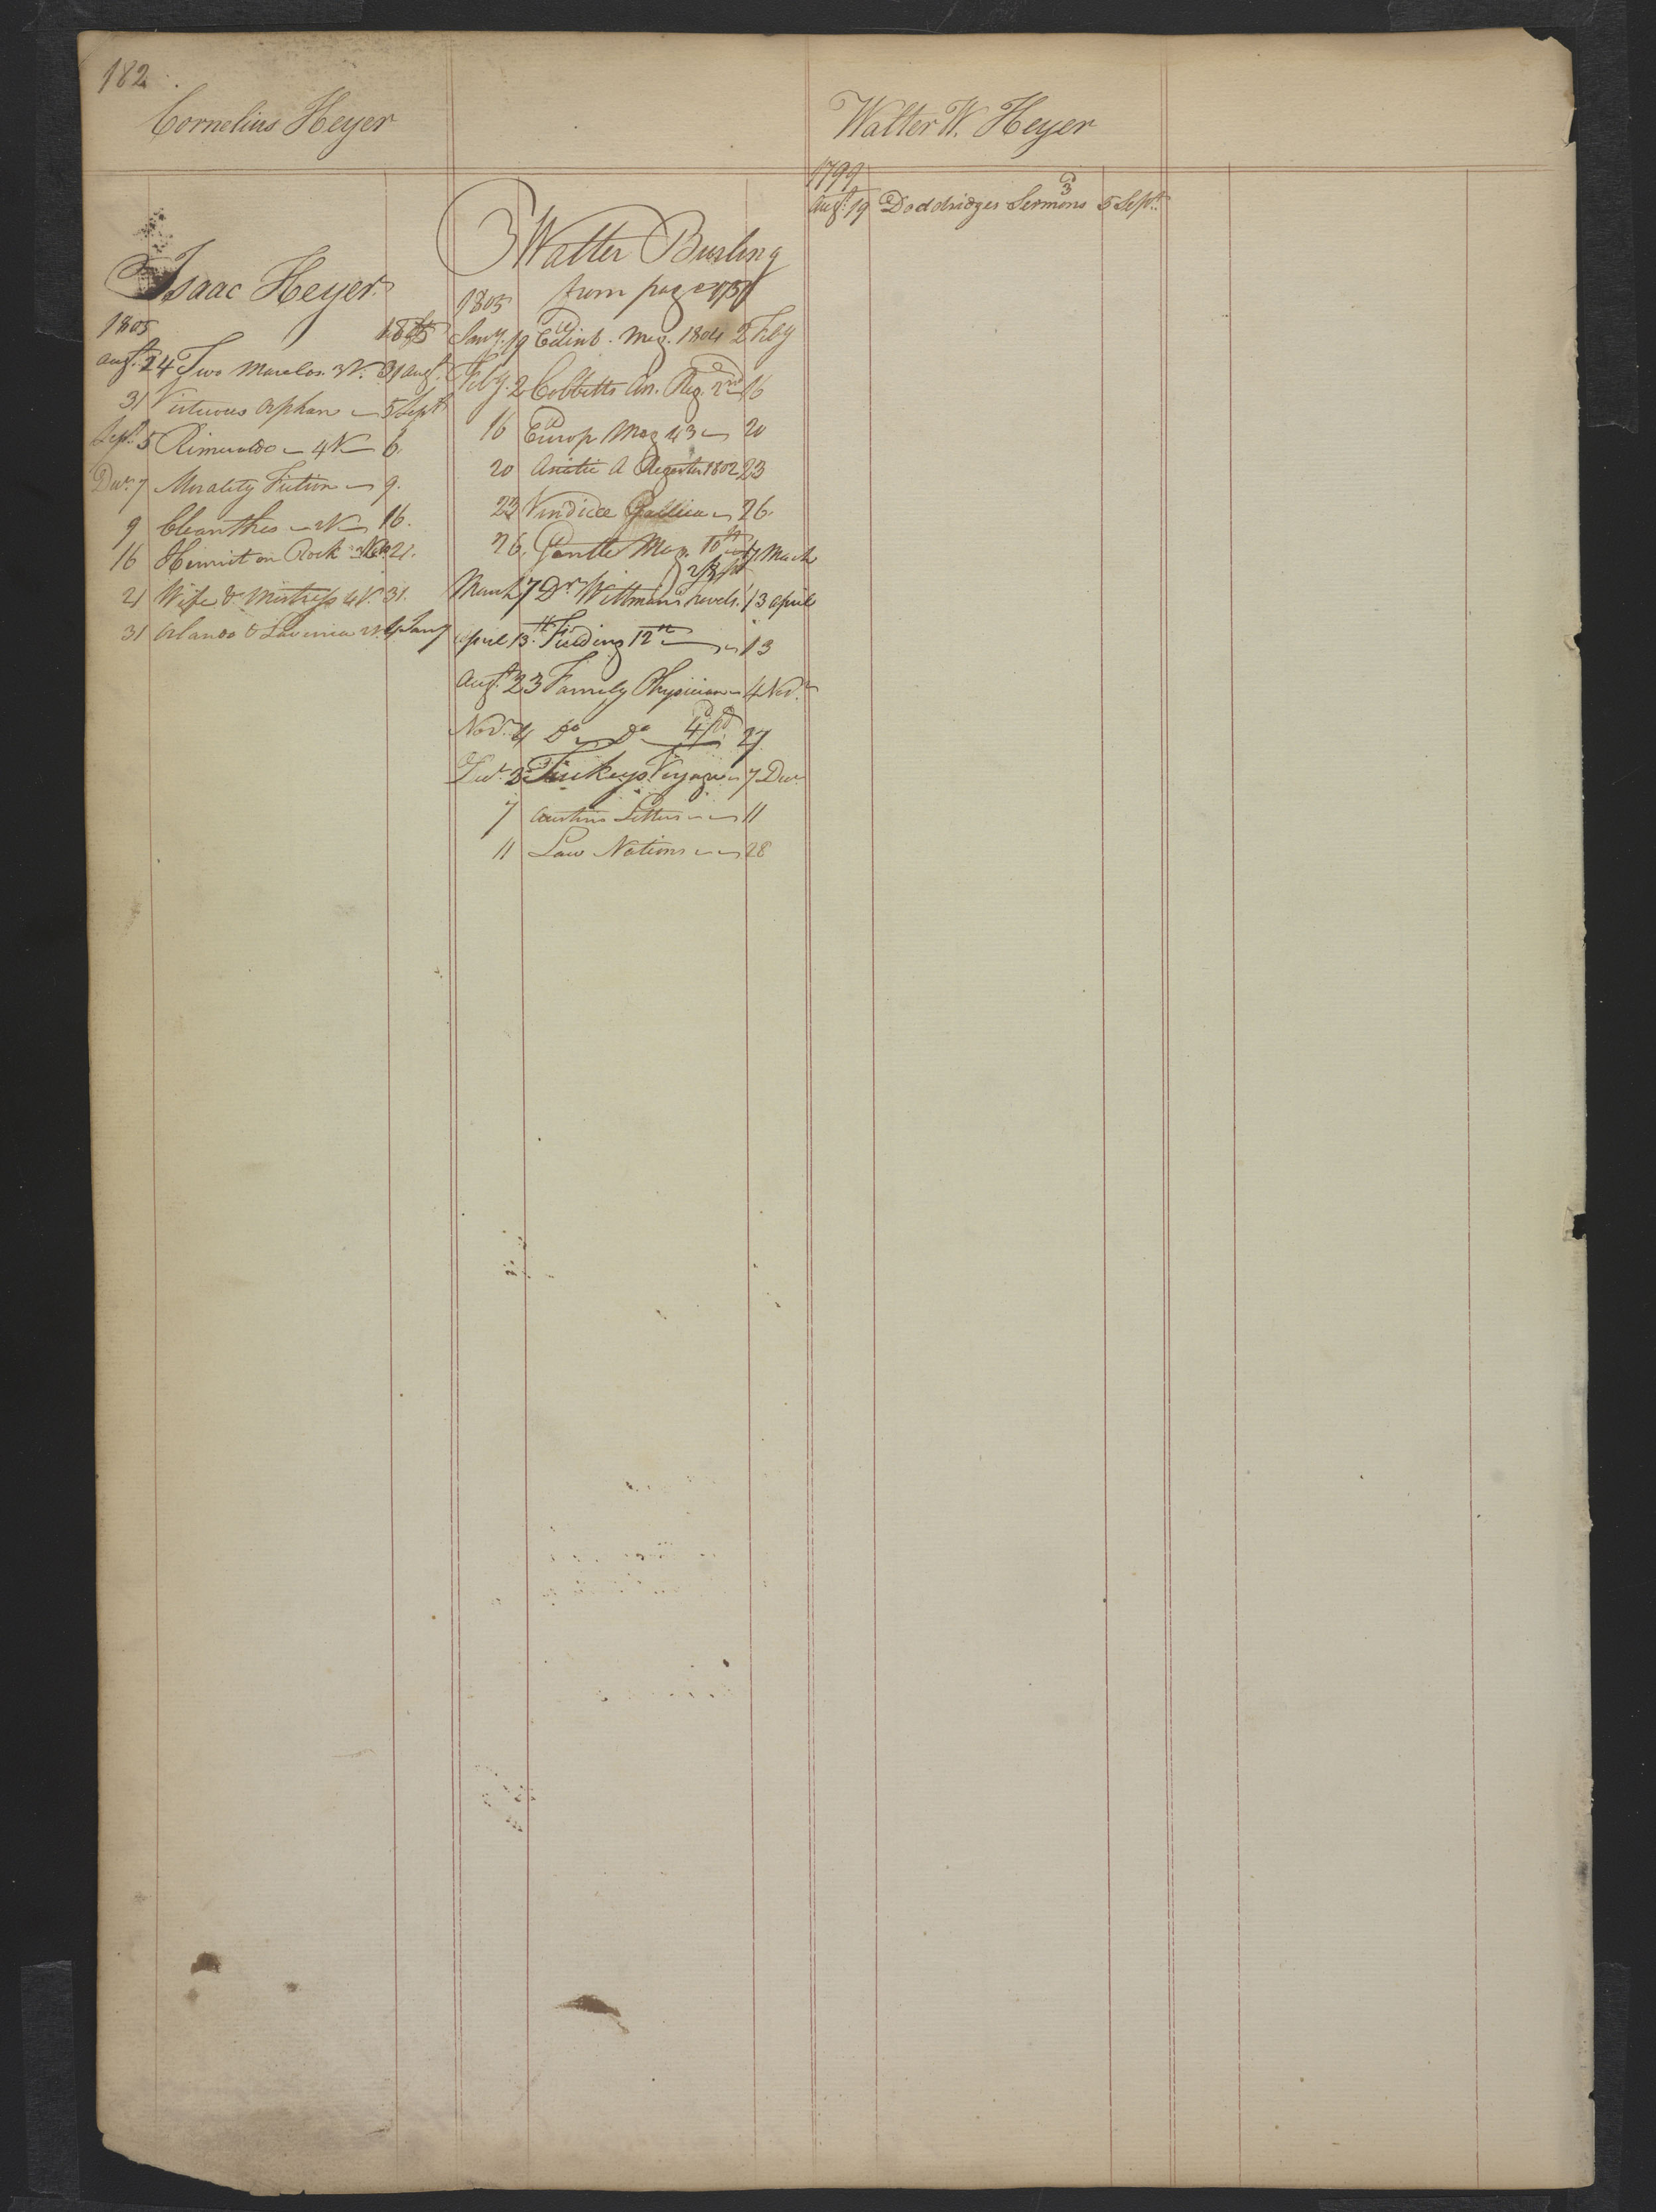 182
Cornelius Heyer
Isaac Heyer
1805 1805
Augt. 24 Two Marelos 3V. 31 Augt.
31 Virtuous Orphan 5 Sept
Sept. 5 Rimualdo 4V 6.
Decr. 7 Morality Fiction 9.
9 Cleanthes 2V 16.
16 Hermit on Rock 21.
21 Wife & Mistress 4V. 31.
31 Orlando & Lavinia Jany
Walter Burling
from page
1805
Jany. 19 Edinb. Mag. 1804 2 Feby
Feby. 2 Cobbetts An. Reg. 2nd 16
16 Europ Mag 43 20
20 Asiatic A Register 1802 23
23 Vindiciae Gallicae 26.
26. Gentle Mag. 10th 7 March
March 7 Dr. Wittmans Travels. 13 April
April 13. Fielding 12th 13
Augt. 23 Family Physician 4 Novr.
Novr. 4 Do Do 4/pd 27
Decr. 3 Tuckeys Voyage 7 Decr
7 Austins Letters 11
11 Law Nations 28
Walter W. Heyer
1799
Augt. 19 Doddridges Sermons 3 5 Sept.